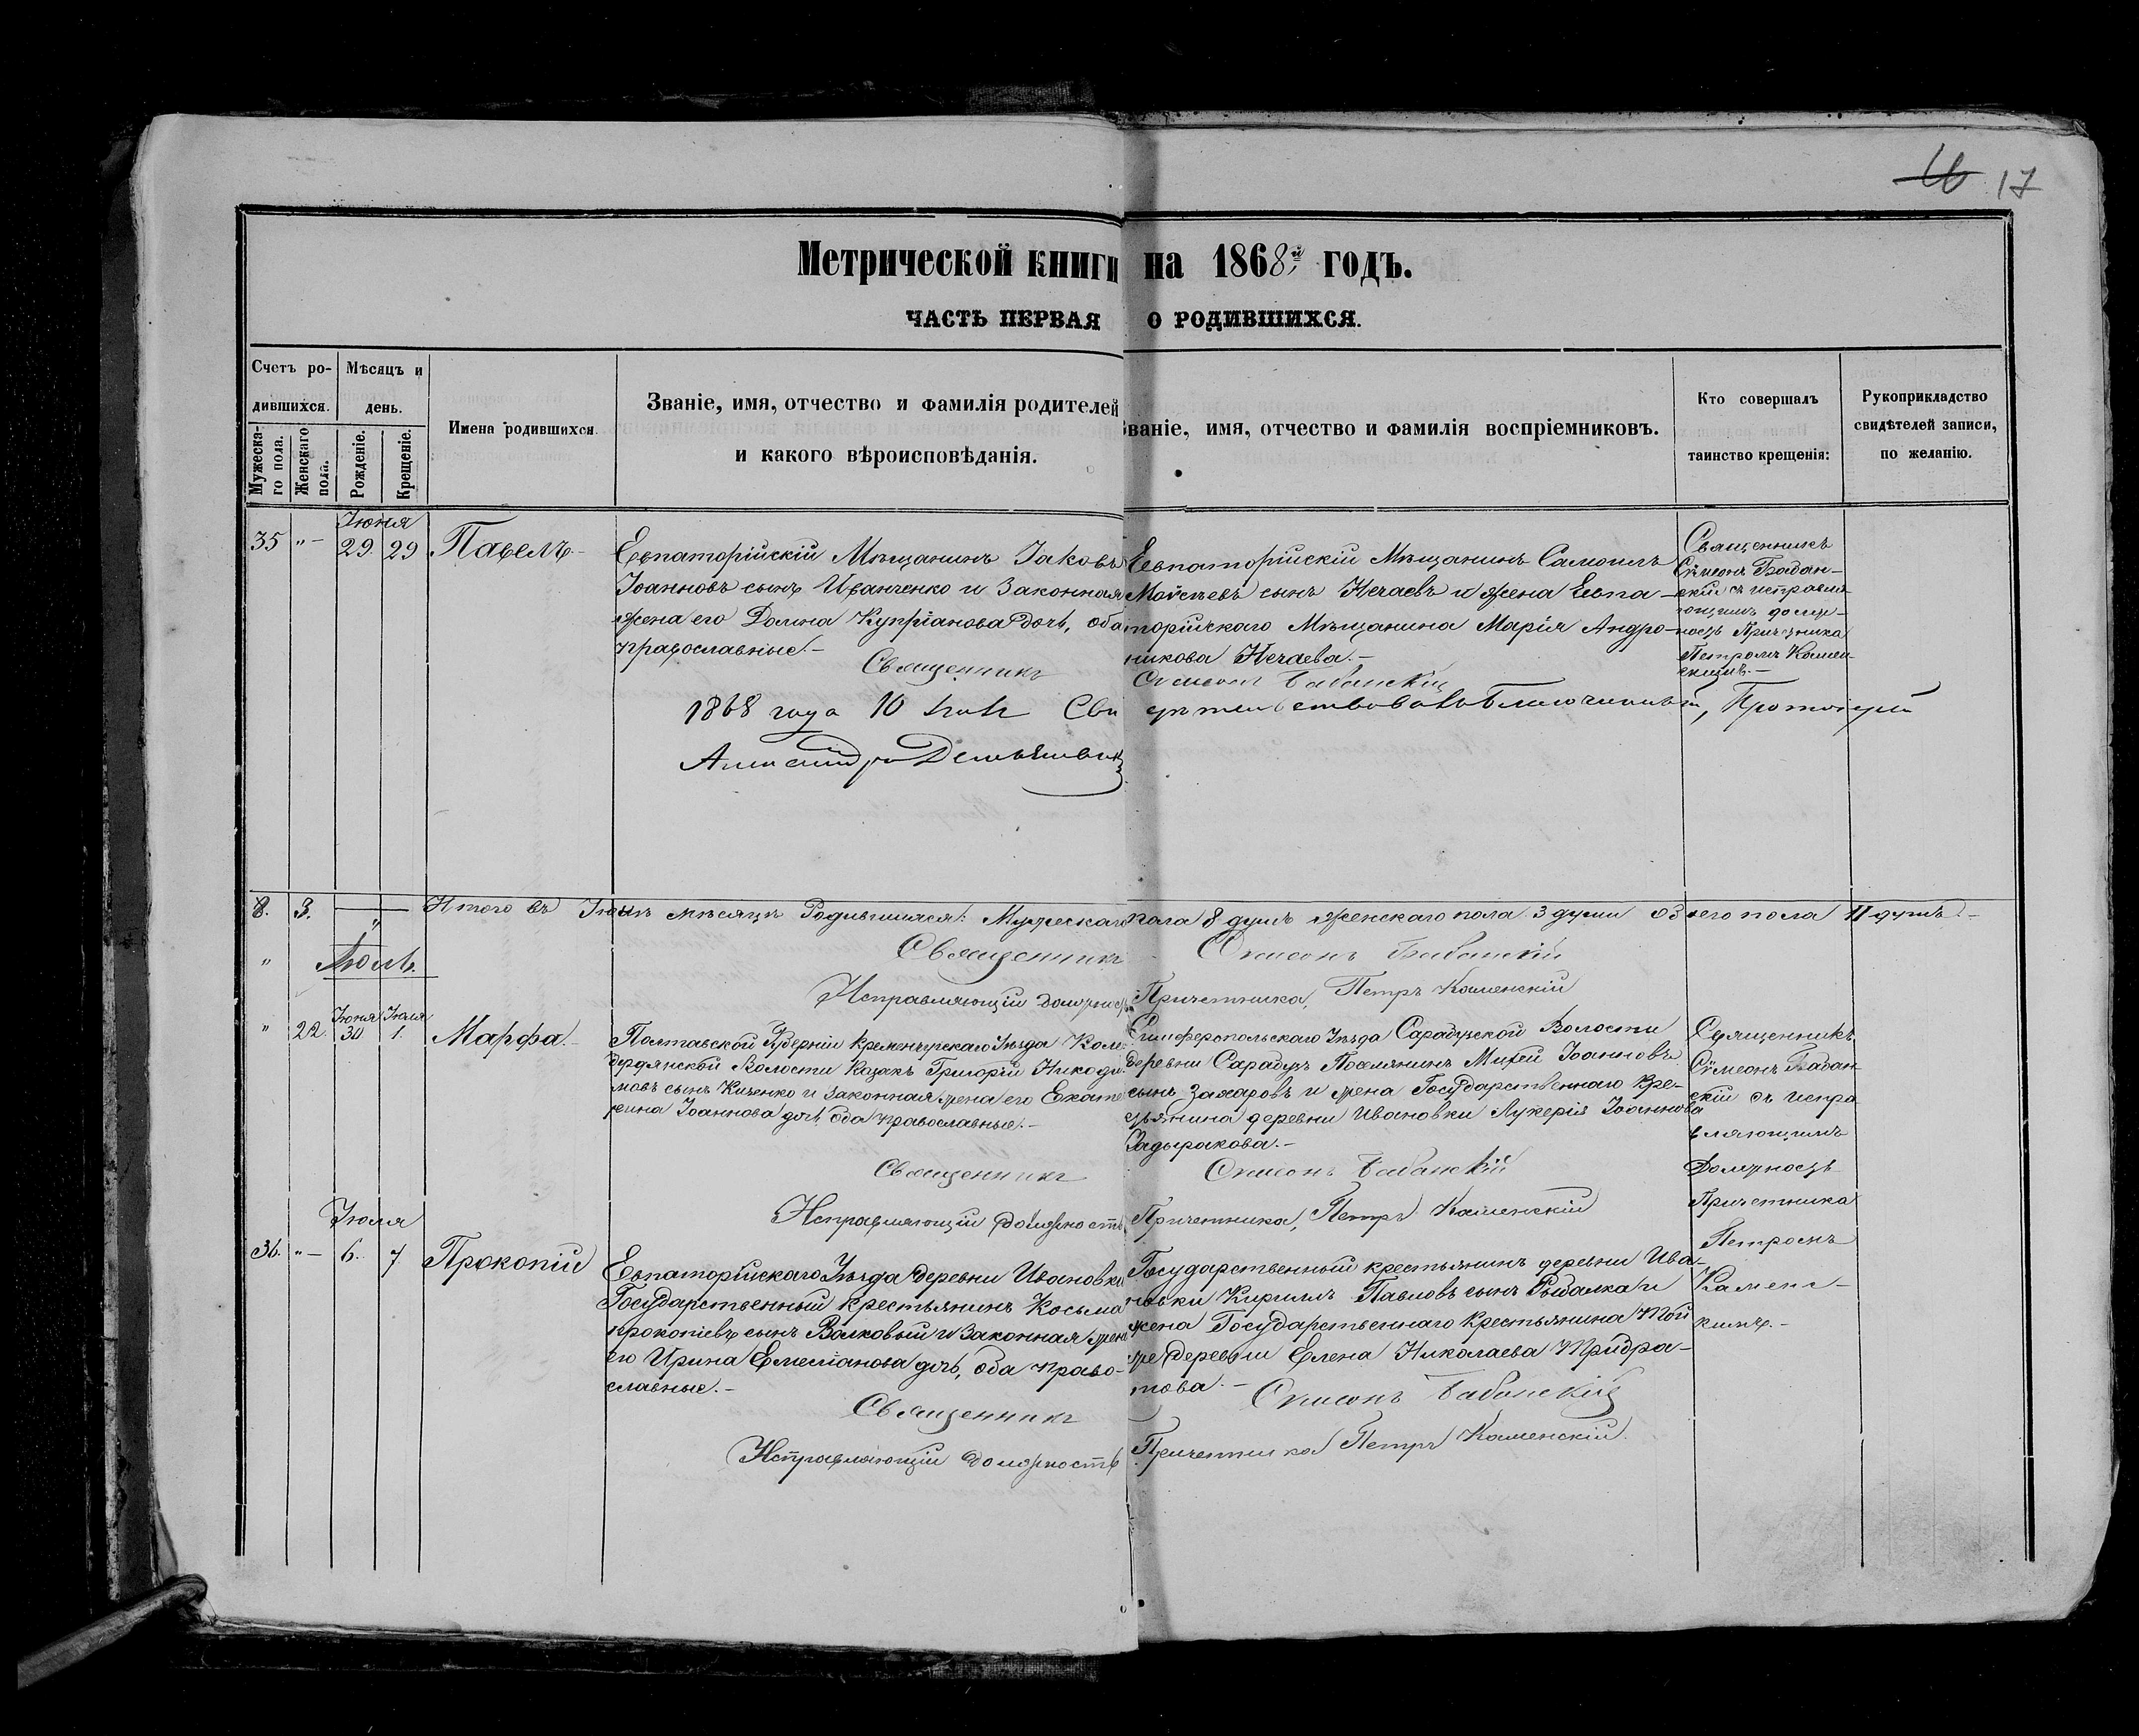 16 17
Метрической книги на 1868й годъ.
ЧАСТЬ ПЕРВАЯ О РОДИВШИХСЯ.
Счетъ ро-
дившихся.
Мужеска-
го пола.
Женскаго
пола.
Мѣсяцъ и
день.
Рожденіе.
Крещеніе.
Имена родившихся.
Званіе, имя, отчество и фамилія родителей
и какого вѣроисповѣданія.
Званіе, имя, отчество и фамилія воспріемниковъ.
Кто совершалъ
таинство крещенія:
Рукоприкладство
свидѣтелей записи,
по желанію.
Іюня
35 "- 29 29 Павелъ-
Евпаторійскій Мѣщанинъ Іаковъ
Іоанновъ сынъ Иванченко и Законная
жена его Домна Купріанова дочь, оба
православные.-
Евпаторійскій Мѣщанинъ Самоилъ
Моѵсеевъ сынъ Нечаевъ и жена Евпа-
торійскаго Мѣщанина Марія Андро-
никова Нечаева.-
Священникъ
Сѵмеонъ Бабан-
скій съ исправля-
ющимъ долж-
ность Причетника
Петромъ Камен-
скимъ.-
Священникъ Сѵмеонъ Бабанскій
1868 года 10 Свидѣтельствовалъ Благочинный, Протоіерей
Александръ
8. 3. Итого въ Іюнѣ мѣсяцѣ Родившихся: Мужескаго пола 8 душъ женскаго пола 3 души обоего пола 11 душъ.-
Священникъ Сѵмеонъ Бабанскій
" Іюль.
Исправляющій должность Причетника, Петръ Каменскій
Іюня Іюля
" 22. 30 1. Марфа.-
Полтавской Губерніи Кременчугскаго Уѣзда
Волости Казакъ Григорій Никоди-
мовъ сынъ Кизенко и законная жена его Екате
рина Іоаннова дочь, оба православные.-
Симферопольскаго Уѣзда Сарабузской Волости
деревни Сарабузъ Поселянинъ Михей Іоанновъ
сынъ Захаровъ и жена Государственнаго Кре-
стьянина деревни Ивановки Лукерія Іоаннова
Задыракова.-
Священникъ
Сѵмеонъ Бабан
скій съ испра
вляющимъ
Должность
Причетника
Петромъ
Каменс-
кимъ.-
Священникъ Сѵмеонъ Бабанскій
Исправляющій должность Причетника, Петръ Каменскій
Іюля
36. "- 6. 7 Прокопій
Евпаторійскаго Уѣзда деревни Ивановки
Государственный крестьянинъ Косьма
Прокопіевъ сынъ Волковый и законная жена
его Ирина Емеліанова дочь, оба право-
славные.-
Государственный крестьянинъ деревни Ива-
новки Кириллъ Павловъ сынъ Рыбалка и
жена Государственнаго Крестьянина той
же деревни Елена Николаева
Священникъ Сѵмеонъ Бабанскій
Исправляющій должность Причетника Петръ Каменскій.